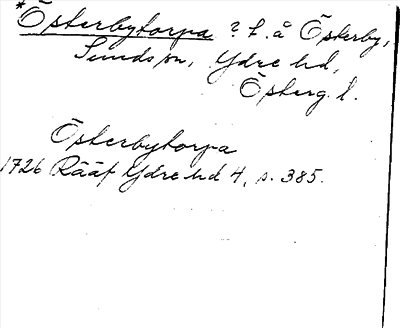 *Österbytorpa ? t. å Österby,
Sunds sn, Ydre hd,
Österg. l.
Österbytorpa
1726 Rääf Ydre hd 4, s. 385.